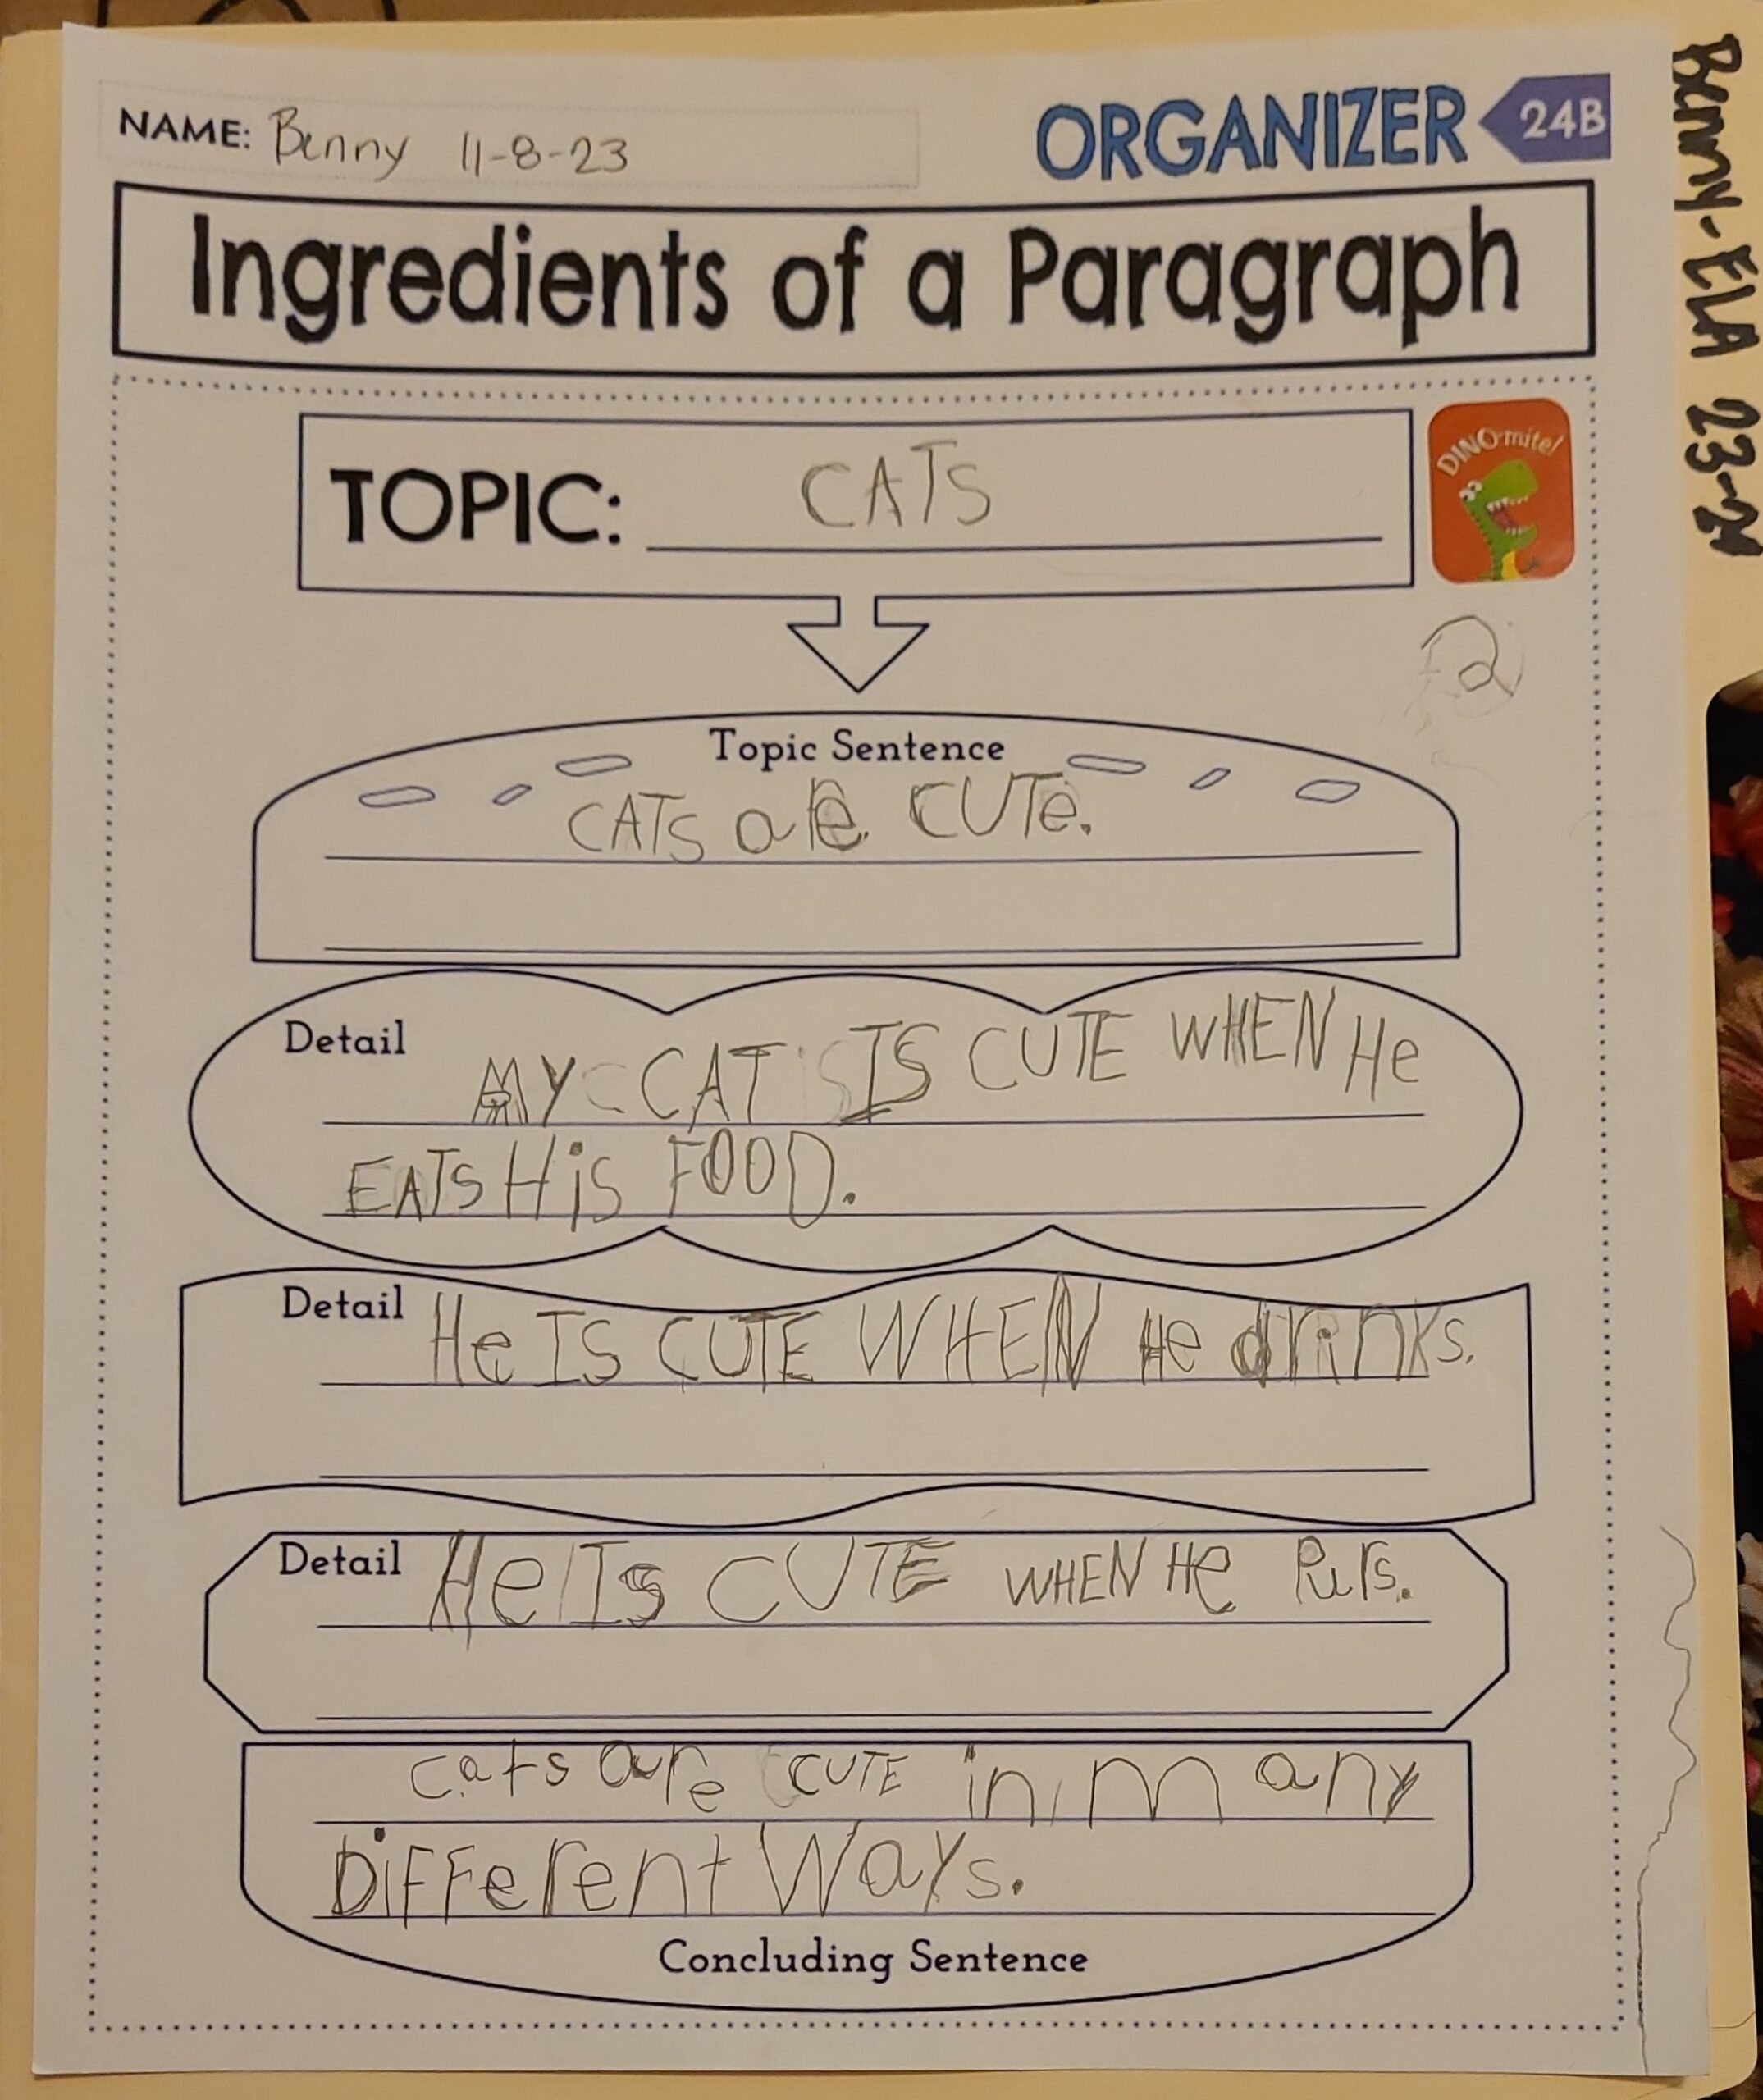 NAME: Benny 11-8-23
ORGANIZER 24B
Ingredients of a Paragraph
TOPIC: CATS
DINO-mite!
Topic Sentence
CATS are CUTe.
Detail
MY CAT IS CUTE WHEN He
EATS HiS FOOD.
Detail
He IS CUTE WHEN He drinks.
Detail
He Is CUTE WHEN He Purs.
cats are CUTE in many
DiFFerent Ways.
Concluding Sentence
Benny-ELA 23-24